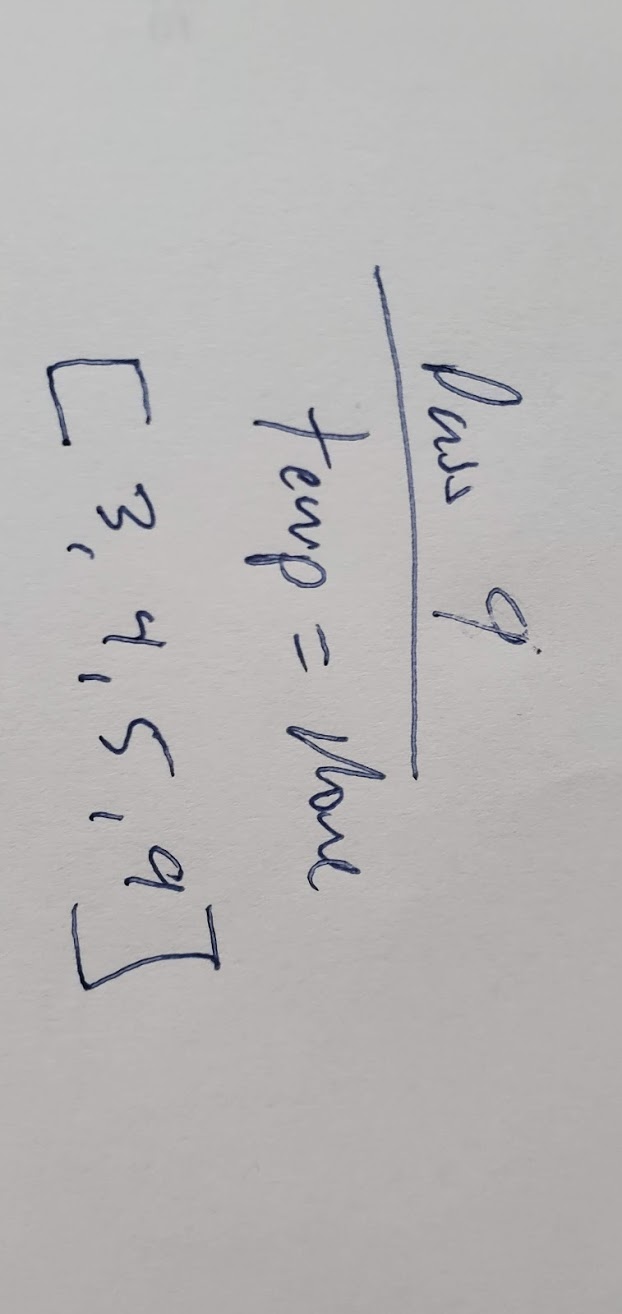 Pass 9
temp = None
[ 3, 4, 5, 9 ]